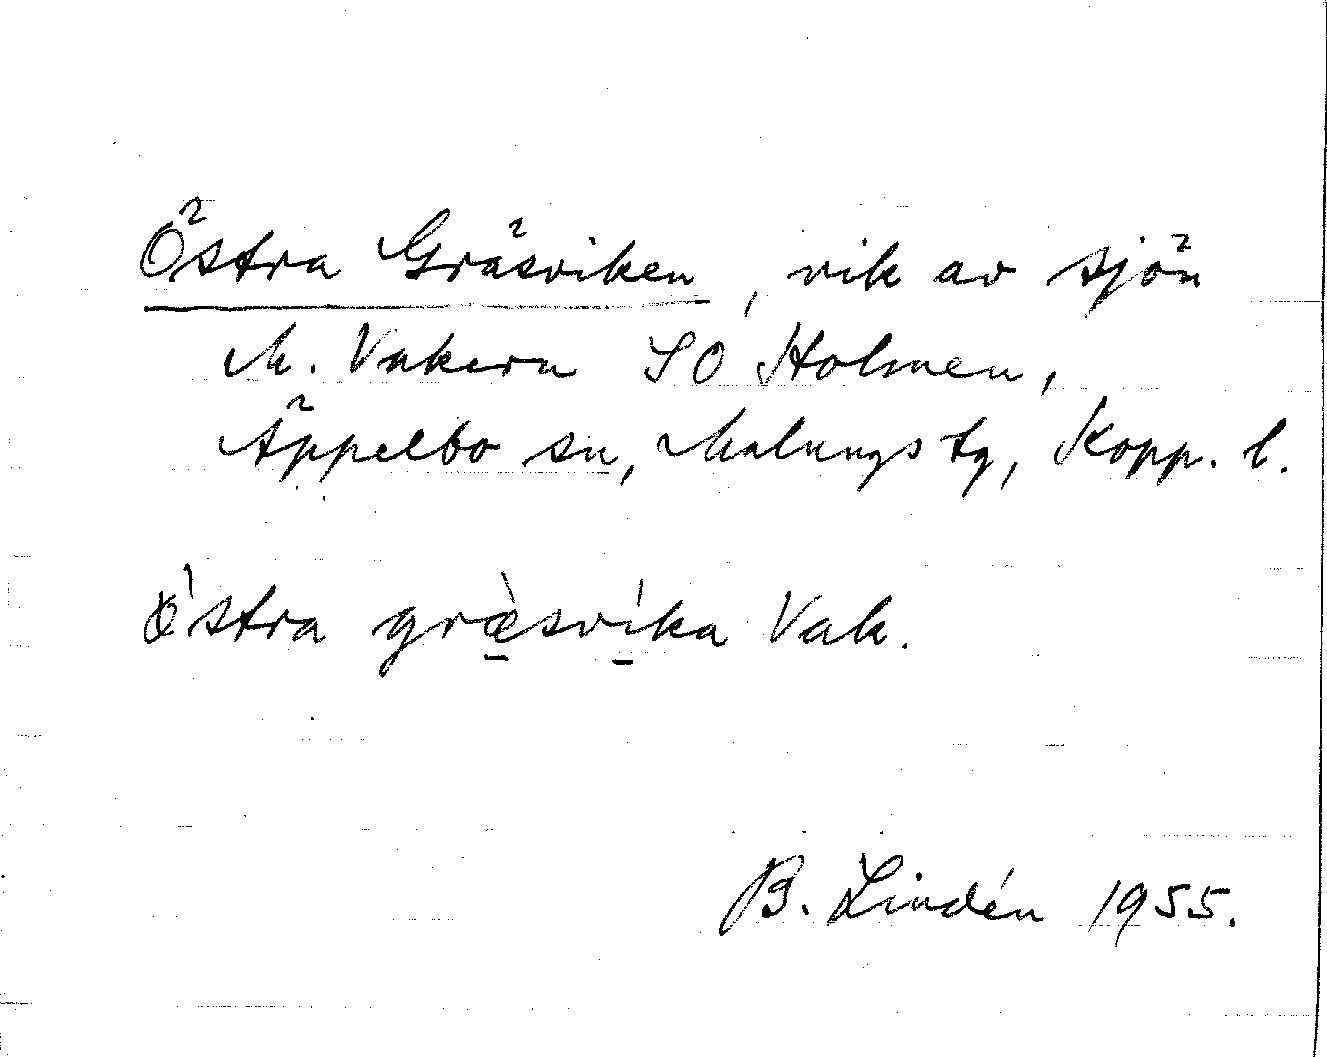 Östra Gräsviken, vik av sjön
M. Vakern SO Holmen,
Äppelbo sn, Malungs tg, Kopp. l.
ö̀stra græ̱̀sví̱ka Vak.
B. Lindén 1955.